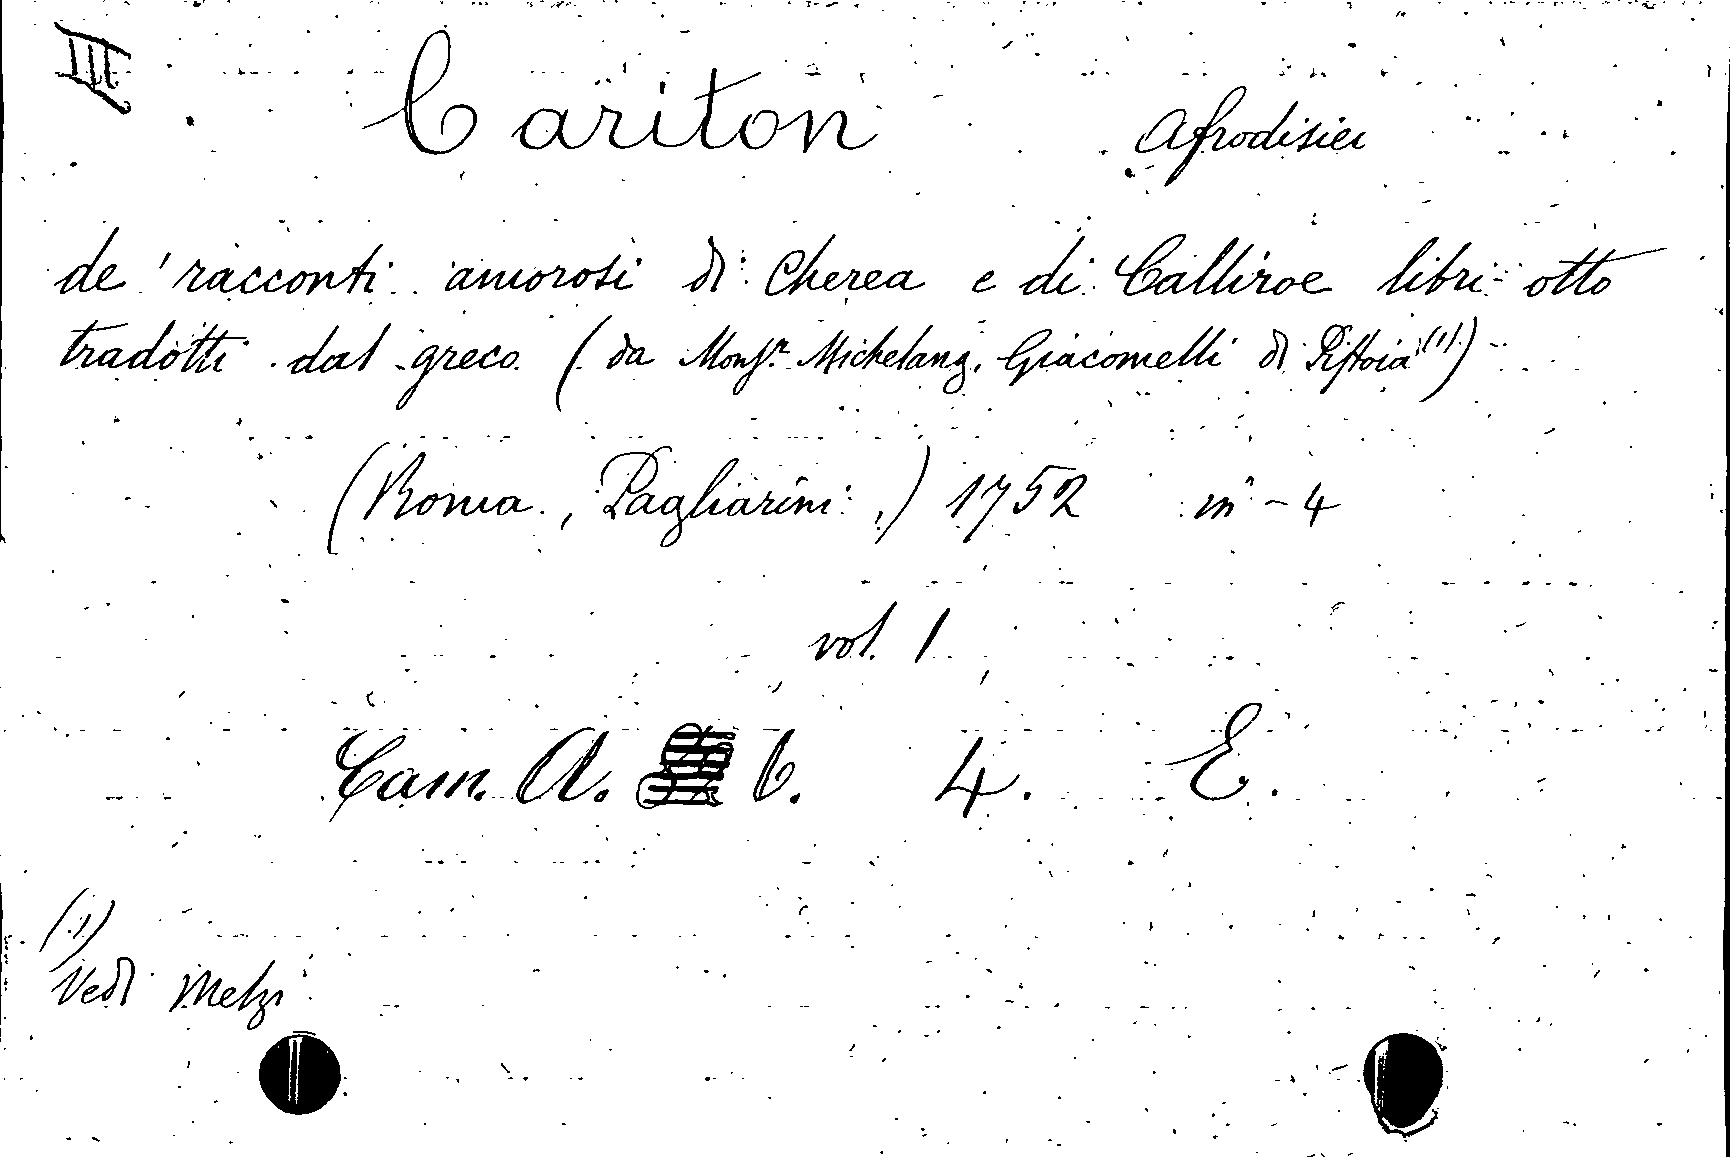 III
Cariton Afrodisieo
de' racconti amorosi di Cherea e di Calliroe libri otto
tradotti dal greco (da Monsr. Michelang. Giacomelli di Pistoia (1))
(Roma, Pagliarini,) 1752 in-4
vol. 1
Cam. A. b. 4. E.
(1)
Vedi Melzi